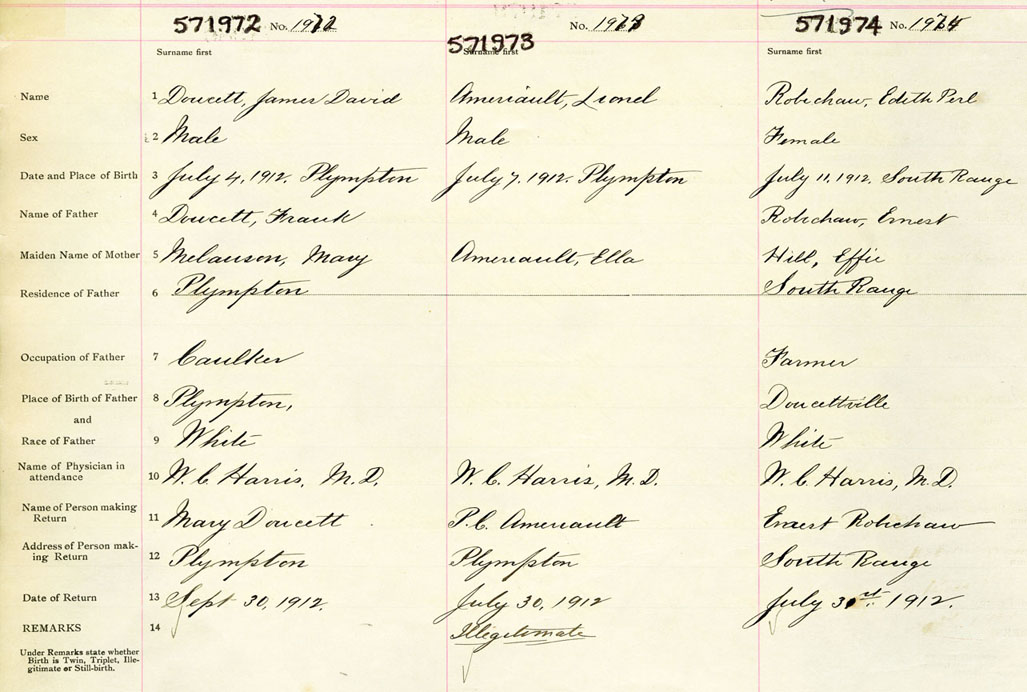 571972 No. 1972 No. 1973 571974 No. 1974
571973
Surname first Surname first Surname first
Name 1 Doucett, James David Ameriault, Lionel Robichaw, Edith Perl
Sex 2 Male Male Female
Date and Place of Birth 3 July 4, 1912. Plympton July 7, 1912. Plympton July 11, 1912. South Range
Name of Father 4 Doucett, Frank Robichaw, Ernest
Maiden Name of Mother 5 Melanson, Mary Ameriault, Ella Hill, Effie
Residence of Father 6 Plympton South Range
Occupation of Father 7 Caulker Farmer
Place of Birth of Father 8 Plympton, Doucettville
and
Race of Father 9 White White
Name of Physician in
attendance 10 W. C. Harris, M.D. W. C. Harris, M.D. W. C. Harris, M.D.
Name of Person making
Return 11 Mary Doucett P. C. Ameriault Ernest Robichaw
Address of Person mak-
ing Return 12 Plympton Plympton South Range
Date of Return 13 Sept 30, 1912. July 30, 1912 July 31st. 1912.
REMARKS 14 Illegitimate
Under Remarks state whether
Birth is Twin, Triplet, Ille-
gitimate or Still-birth.